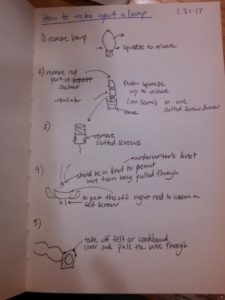 How to take apart a lamp
1.31.17
1) remove harp
squeeze to release
2) remove
part of
socket
insulator
squeeze
up to release
(on some) or use
slotted screw driver
base
3)
remove
slotted screws
underwriter's knot
4)
should be a knot to prevent
wire from being pulled through
to get this off might need to loosen a
set screw
5)
take off felt or cardboard
cover and pull the wire through